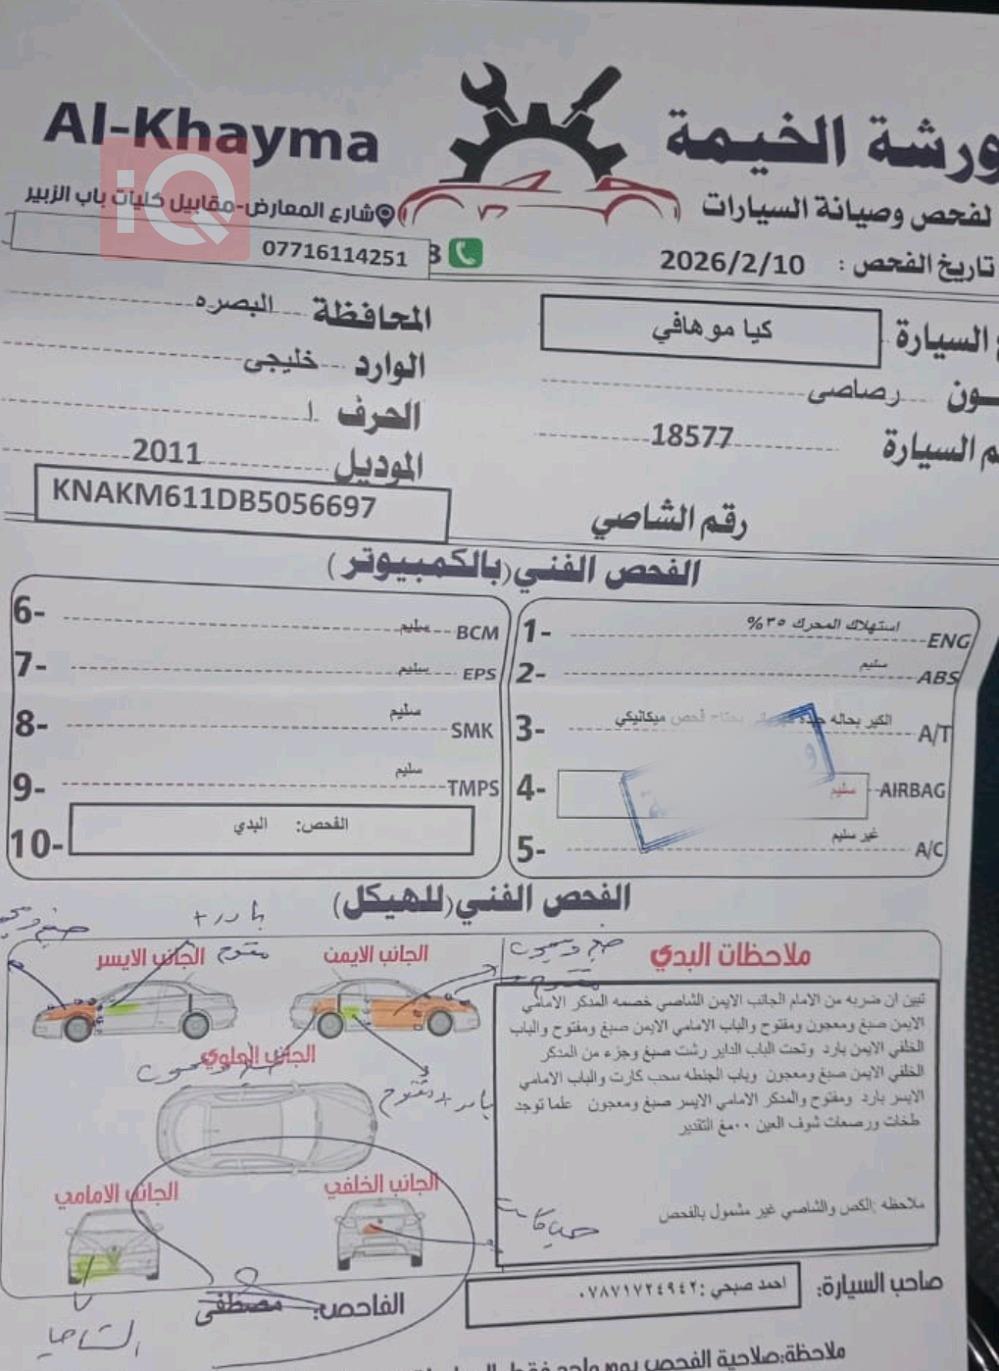 Al-Khayma
ورشة الخيمة
لفحص وصيانة السيارات
شارع المعارض-مقابيل كليات باب الزبير
iQ
07716114251
تاريخ الفحص : 2026/2/10
السيارة كيا موهافي
المحافظة البصره
ـون رصاصي
الوارد خليجي
م السيارة 18577
الحرف ا
الموديل 2011
رقم الشاصي KNAKM611DB5056697
الفحص الفني (بالكمبيوتر)
1- استهلاك المحرك ٣٥% ENG
2- سليم ABS
3- الكير بحاله جيده يحتاج فحص ميكانيكي A/T
4- سليم AIRBAG
5- غير سليم A/C
6- سليم BCM
7- سليم EPS
8- سليم SMK
9- سليم TMPS
10- الفحص: البدي
الفحص الفني (للهيكل)
بارد +
مفتوح
الجانب الايمن
الجانب الايسر
الجانب العلوي
بارد + مفتوح
الجانب الخلفي
الجانب الامامي
ملاحظات البدي
تبين ان ضربه من الامام الجانب الايمن الشاصي خصمه المدكر الامامي
الايمن صبغ ومعجون ومفتوح والباب الامامي الايمن صبغ ومفتوح والباب
الخلفي الايمن بارد وتحت الباب الداير رشت صبغ وجزء من المدكر
الخلفي الايمن صبغ ومعجون وباب الجنطه سحب كارت والباب الامامي
الايسر بارد ومفتوح والمدكر الامامي الايسر صبغ ومعجون علما توجد
طخات ورصعات شوف العين ٠٠مع التقدير
ملاحظه :الكص والشاصي غير مشمول بالفحص
صاحب السيارة: احمد صبحي :٠٧٨٧١٧٢٤٩٤٢
الفاحص: مصطفى
ملاحظة:صلاحية الفحص يوم واحد فقط